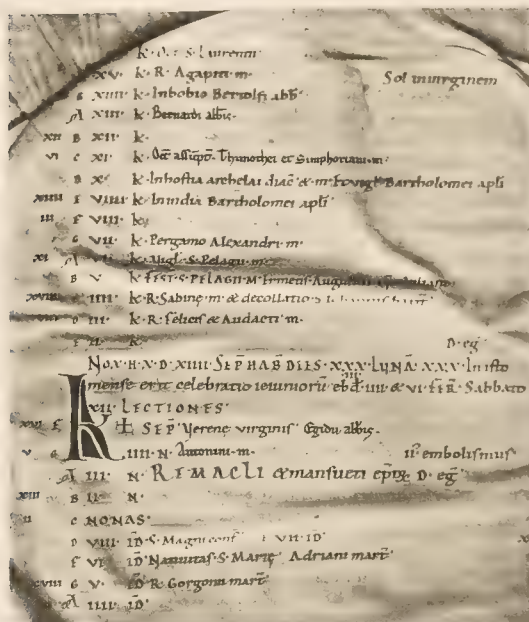 k· Oct· S· Laurentii·
XV· k· R· Agapiti· m·
G XIIII· k· In bobio Bertolfi abb̅·
Sol in virginem
A XIII· k· Bernardi abbis·
XII B XII· k·
VI C XI· k· Oct̅ assupt· Thimothei et Simphoriani· m·
B X· k· In hostia archelai diac̅ & m· Et vigl̅· Bartholomei apli
XIIII E VIIII· k· In india Bartholomei apli
III F VIII· k·
G VII· k· Pergamo Alexandri· m·
XI A VI· k· Vigl̅· S· Pelagii· m·
B V· k· FEST· S· PELAGII· M·
XVIIII C IIII· k· R· Sabine· m· & decollatio S·
D III· k· R· felicis & Audacti· m·
E II· k·
D· eg̅·
NOX· H· X· D· XIIII· SEP̅· HAB̅· DIES· XXX· LUNA̅· XXX· In isto
mense erit celebratio ieiunioru̅ ebd̅· IIII· & VI· fer̅· Sabbato
XII· LECTIONES·
XVI F K SEP̅· Verene virginis· Egidii abbis·
V G IIII· N· Antonini· m·
II· embolismus
A III· N· REMACLI & mansueti ep̅· D· eg̅·
XIII B II· N·
II C NONAS·
D VIII· ID̅· S· Magni conf̅·
VII· ID̅·
F VI· ID̅· Nativitas· S· Marię· Adriani mart̅·
XVIII G V· ID̅· R· Gorgonii mart̅·
A IIII· ID̅·